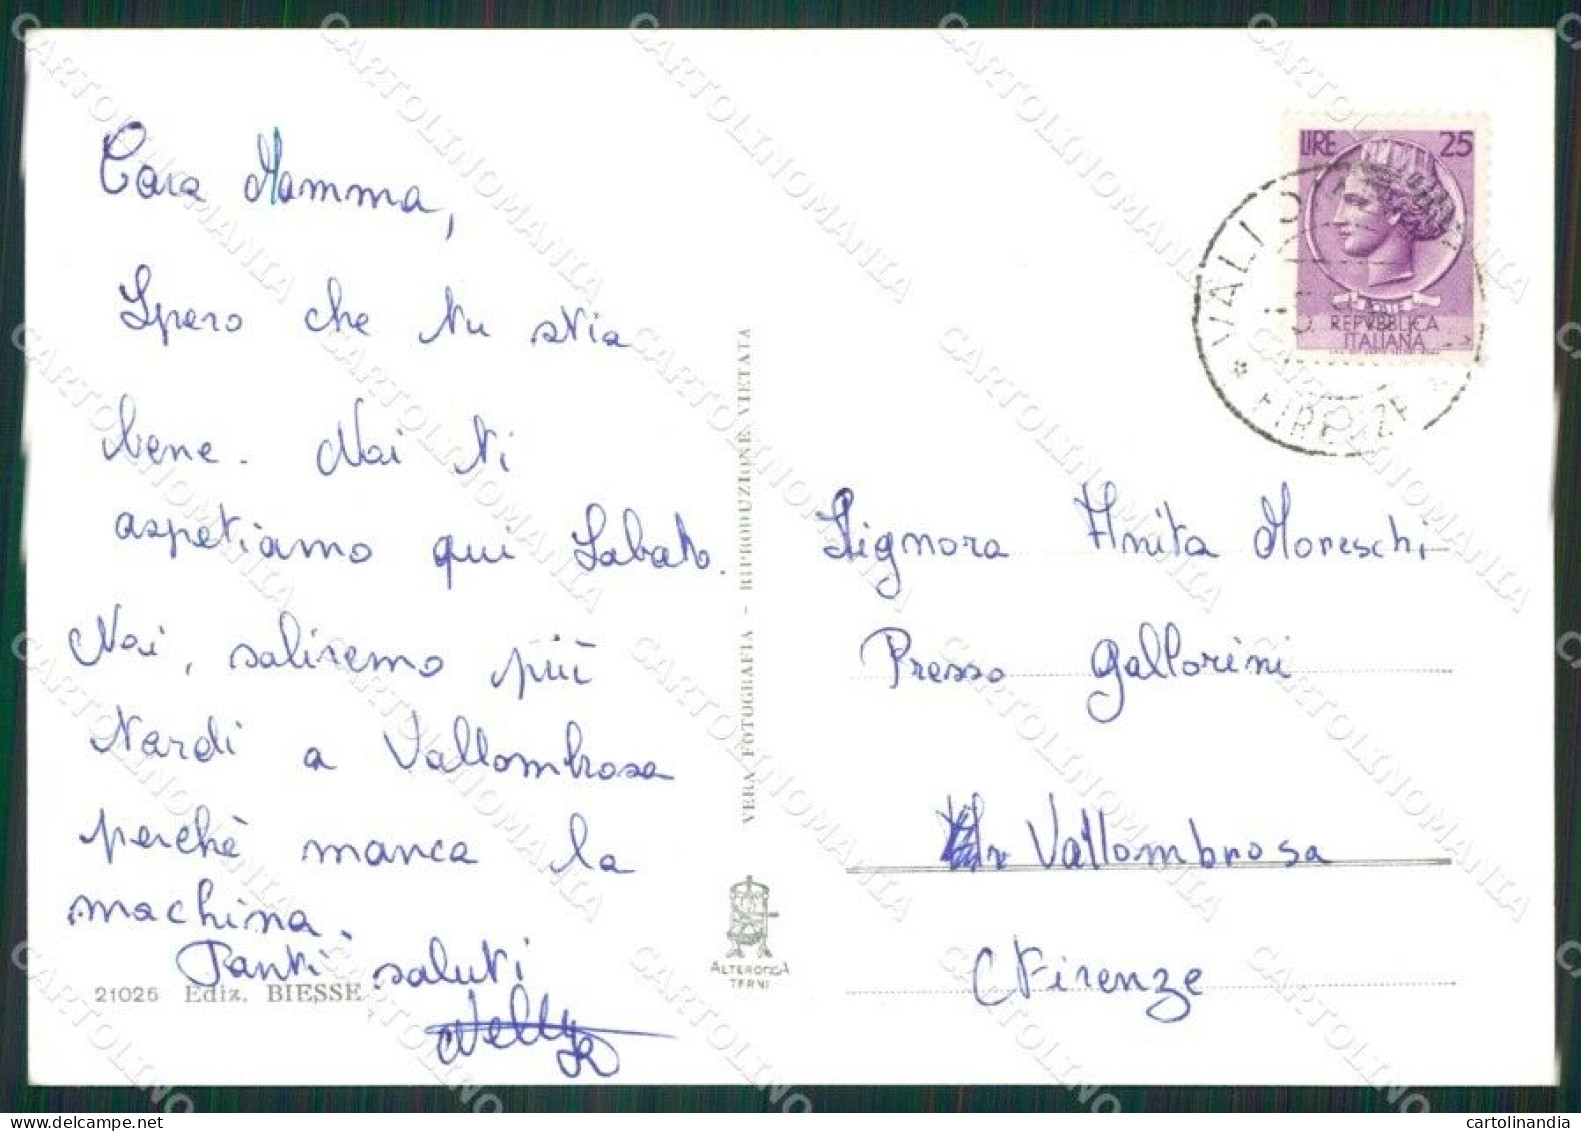 Cara Mamma,
Spero che tu stia
bene. Noi ti
aspetiamo qui Sabato.
Noi, saliremo più
tardi a Vallombrosa
perchè manca la
machina.
Tanti saluti
Nelly
21025 Ediz. BIESSE
VERA FOTOGRAFIA - RIPRODUZIONE VIETATA
ALTEROCCA
TERNI
LIRE 25
REPVBBLICA
ITALIANA
FIRENZE
Signora Anita Moreschi
Presso Gallorini
Vallombrosa
(Firenze
CARTOLINOMANIA
cartolinandia